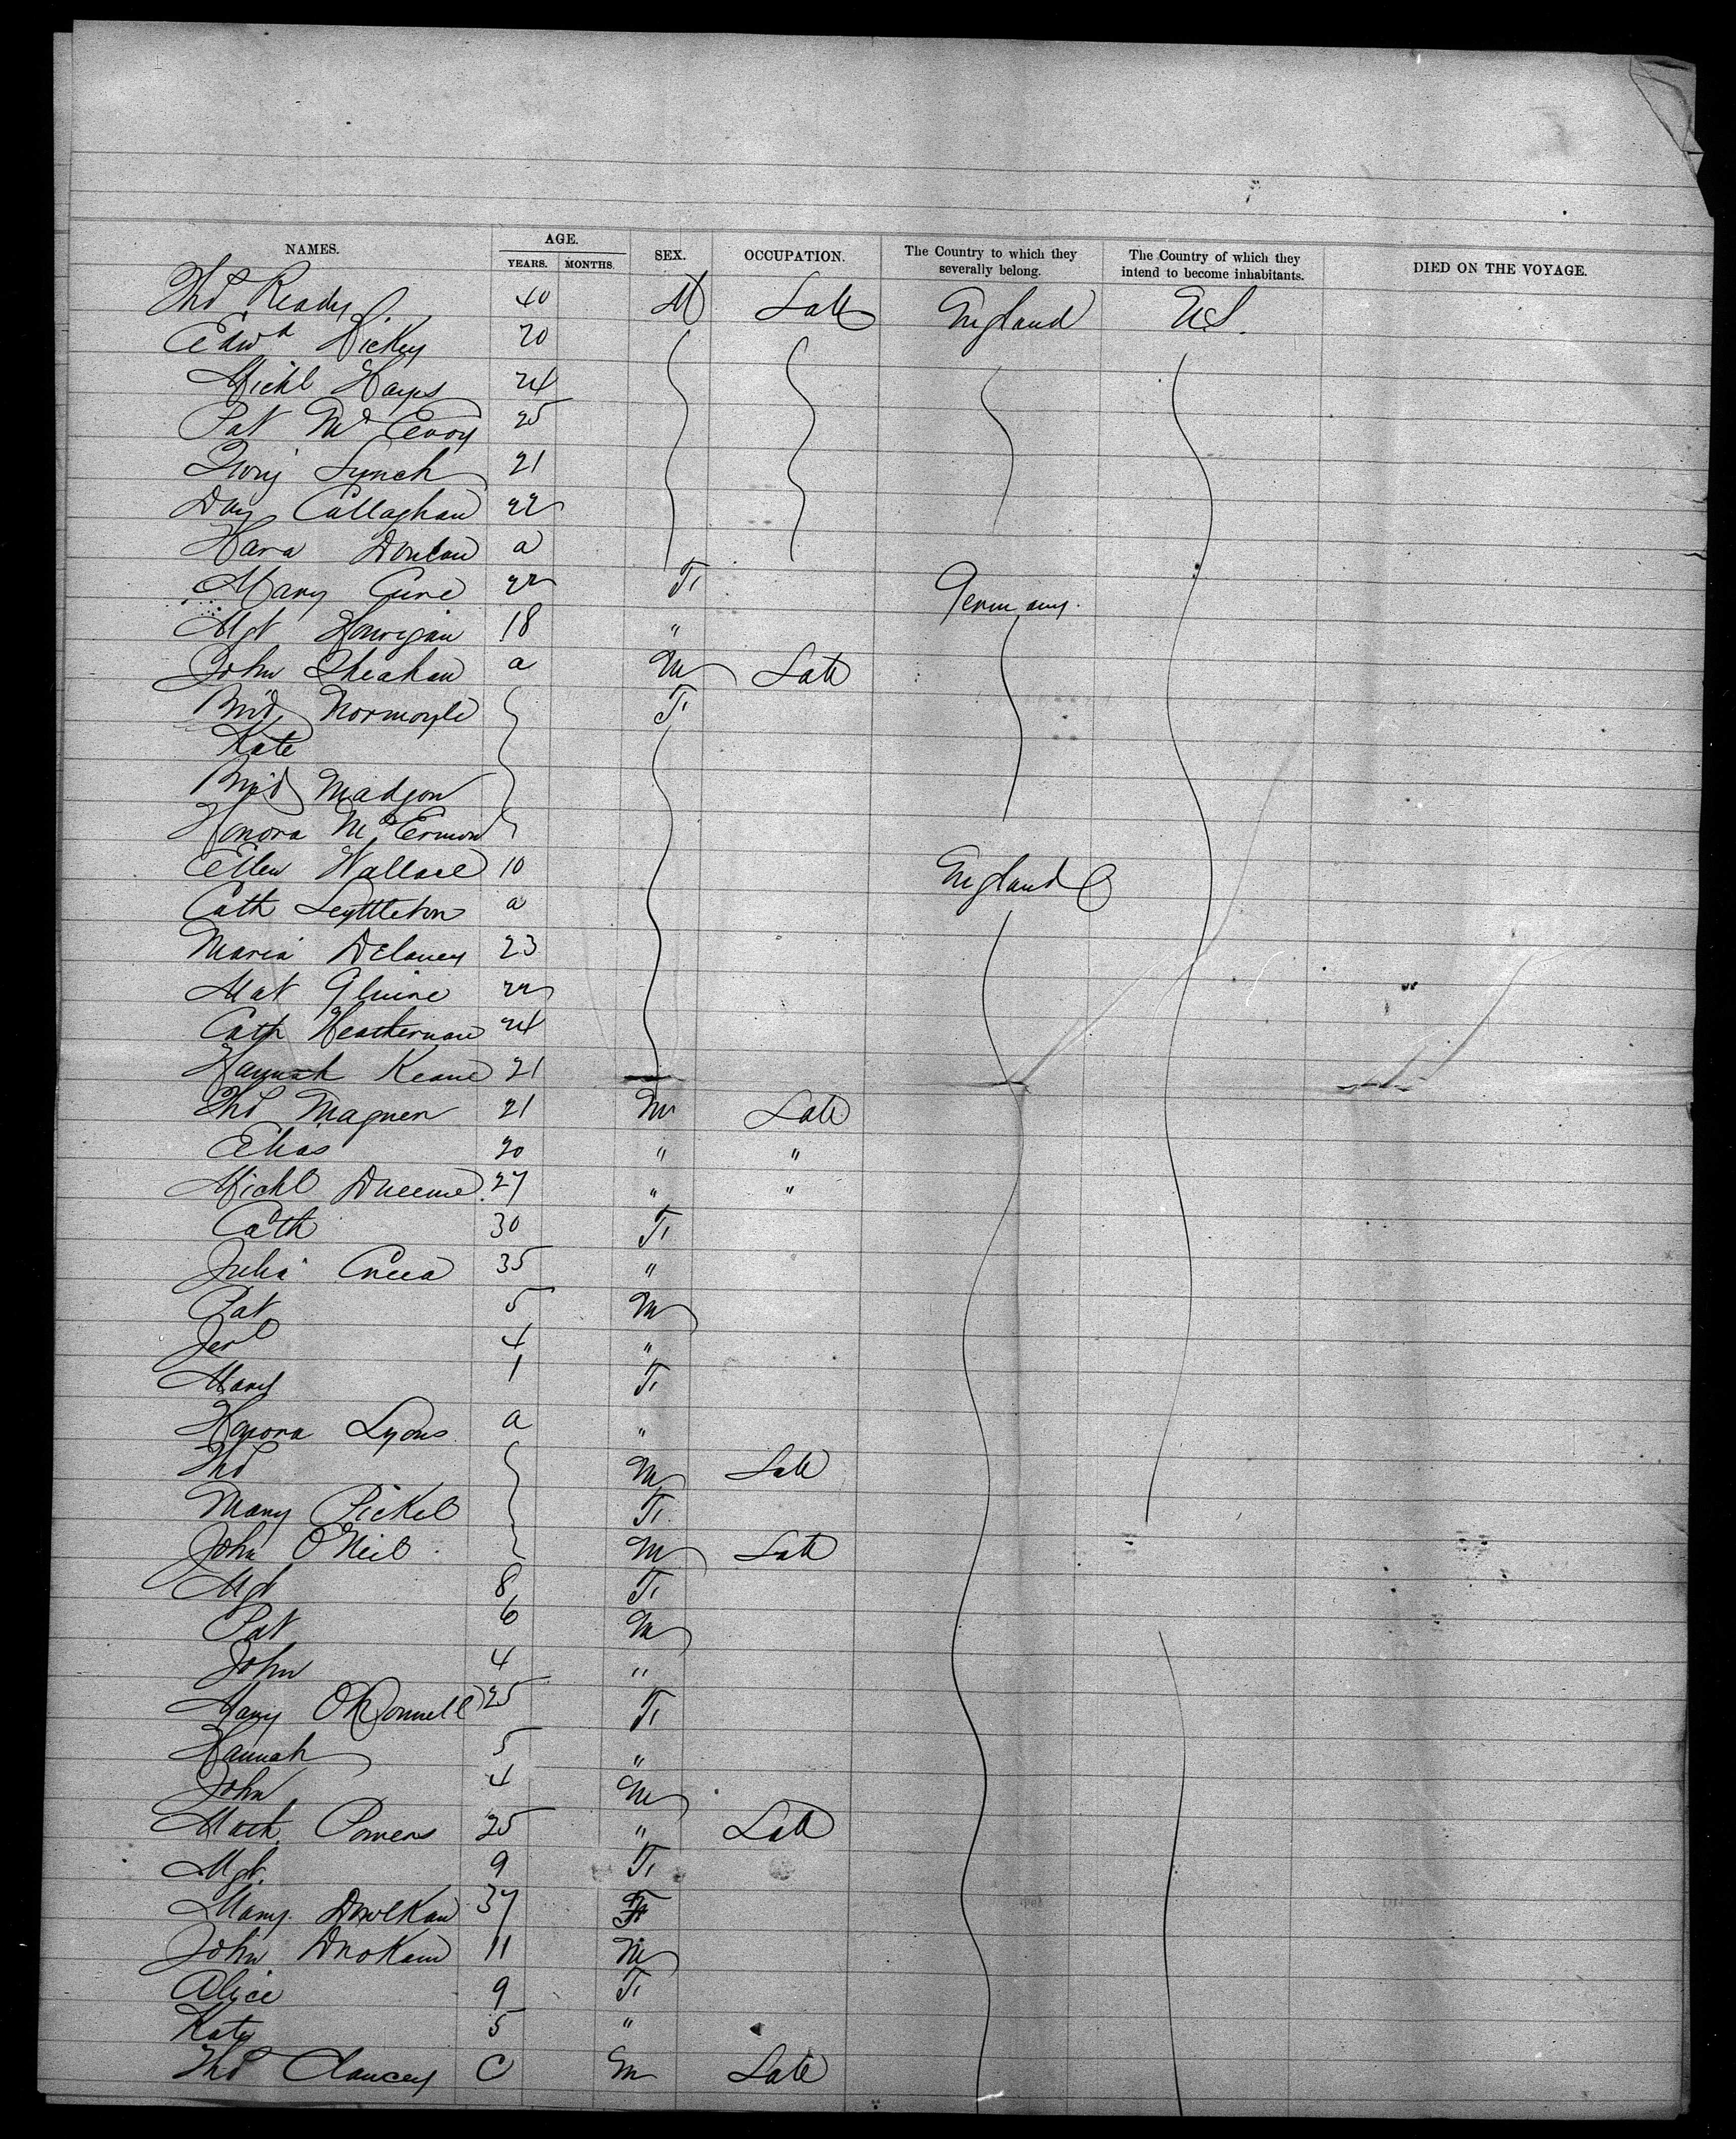 NAMES. AGE. SEX. OCCUPATION. The Country to which they severally belong. The Country of which they intend to become inhabitants. DIED ON THE VOYAGE.
YEARS. MONTHS.
Thos Ready 40 M Lab England U.S.
Edwd Hickey 20
Michl Hayes 24
Pat Mc Evoy 25
Lynch 21
Callaghan 22
Donlan a
Mary 22 F Germany
Mgt Horrigan 18 "
John Sheahan a M Lab
Brid Normoyle F
Kate
Brid Madgon
Honora
Ellen Wallace 10 England
Cath Lyttleton a
Maria Delaney 23
Mat 22
Cath Heathernan 24
Hannah Keane 21
Thos Magner 21 M Lab
20 " "
Michl 27 " "
Cath 30 F
Julia 35 "
Pat 5 M
4 "
Mary 1 F
Honora Lyons a "
Thos M Lab
Mary Pickel F
John O'Neil M Lab
Mgt 8 F
Pat 6 M
John 4 "
Mary O'Donnell 25 F
Hannah 5 "
John 4 M
Powers 25 " Lab
Mgt. 9 F
Mary 37 F
John 11 M
Alice 9 F
Kate 5 "
Thos Clancey C M Lab